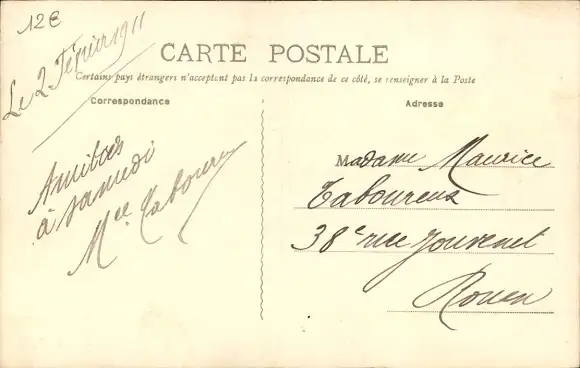 12€
Le 2 Février 1911
CARTE POSTALE
Certains pays étrangers n'acceptent pas la correspondance de ce côté, se renseigner à la Poste
Correspondance
Adresse
Amitiés
à samedi
Mce Taboureux
Madame Maurice
Taboureux
38e rue Jouvenet
Rouen